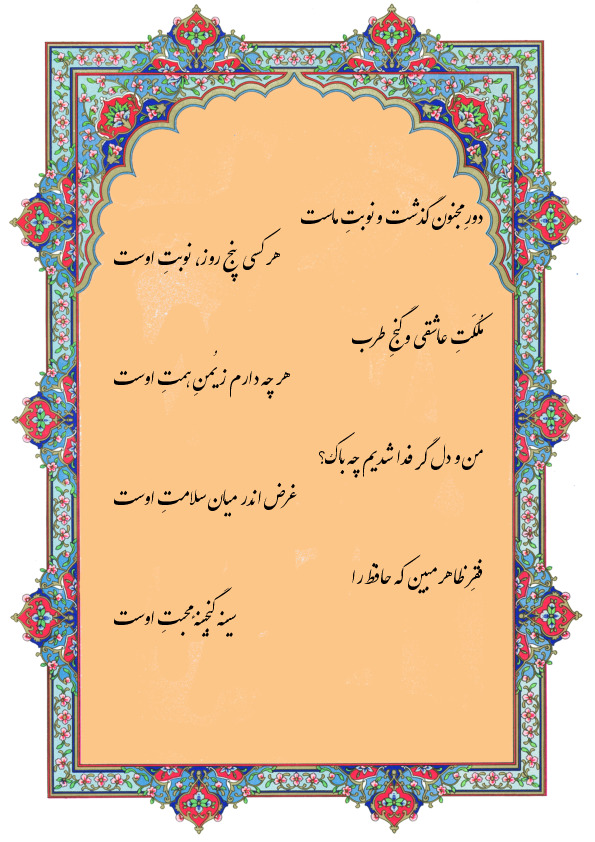 دورِ مجنون گذشت و نوبتِ ماست
هر کسی پنج روز، نوبتِ اوست
مُلکَتِ عاشقی و گنجِ طرب
هر چه دارم ز یُمنِ همتِ اوست
من و دل گر فدا شدیم چه باک؟
غرض اندر میان سلامتِ اوست
فقرِ ظاهر مبین که حافظ را
سینه گنجینهٔ محبتِ اوست